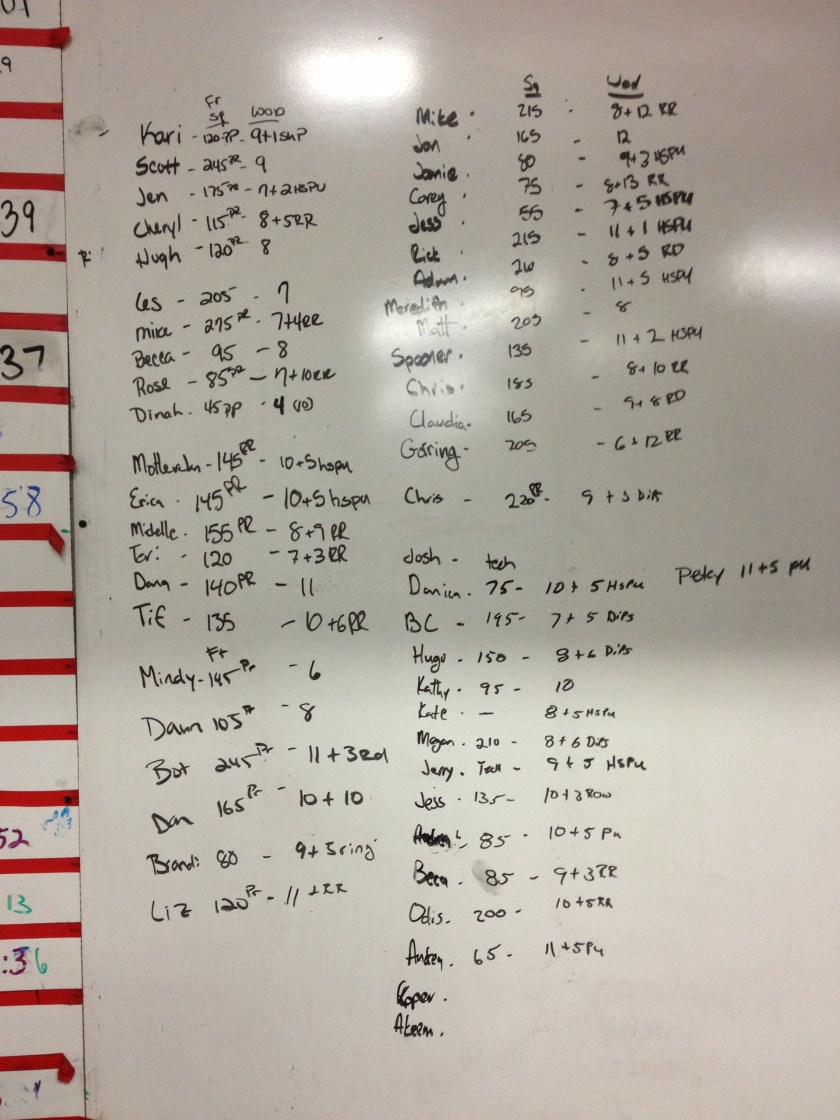 Fr
Sq WOD
Kari - 120 PP - 9+1SHP
Scott - 245 PR - 9
Jen - 175 PR - 7+2HSPU
Cheryl - 115 PR - 8+5RR
Hugh - 120 PR 8
Les - 205 - 7
Mike - 275 PR - 7+4RR
Becca - 95 - 8
Rose - 85 PR - 7+10RR
Dinah. 45 PP - 4 (10)
- 145 PR - 10+5hspu
Erica . 145 PR - 10+5hspu
Midelle . 155 PR - 8+9 RR
Teri - 120 - 7+3RR
Dana - 140 PR - 11
Tif - 135 - 10+6RR
Fr
Mindy - 145 Pr - 6
Dawn 105 Pr - 8
Bot 245 Pr - 11+3Rd
Dan 165 Pr - 10+10
Brandi 80 - 9+5ring
Liz 120 Pr - 11 +RR
Sq Wod
Mike . 215 - 8+12 RR
Jon . 165 - 12
Jamie . 80 - 9+3 HSPU
Corey . 75 - 8+13 RR
Jess . 55 - 7+5 HSPU
Rick . 215 - 11+1 HSPU
Adam . 210 - 8+5 RD
Meredith . 95 - 11+5 HSPU
Matt . 205 - 8
Spooner . 135 - 11+2 HSPU
Chris . 185 - 8+10 RR
Claudia . 165 - 9+8 RD
Goring - 205 - 6+12 RR
Chris - 220 PR - 9+3 Dips
Josh - tech
Danica . 75 - 10+5 HSPU Petey 11+5 pu
BC - 195 - 7+5 Dips
Hugo - 150 - 8+6 Dips
Kathy . 95 - 10
Kate . - 8+5 HSPU
Megan . 210 - 8+6 Dips
Jerry . Tech - 9+5 HSPU
Jess . 135 - 10+3 ROW
85 - 10+5 Pu
Becca . 85 - 9+3RR
Odis . 200 - 10+5RR
Audrey . 65 - 11+5Pu
Koper .
Akeem .
01
9
39
37
58
52
13
:36